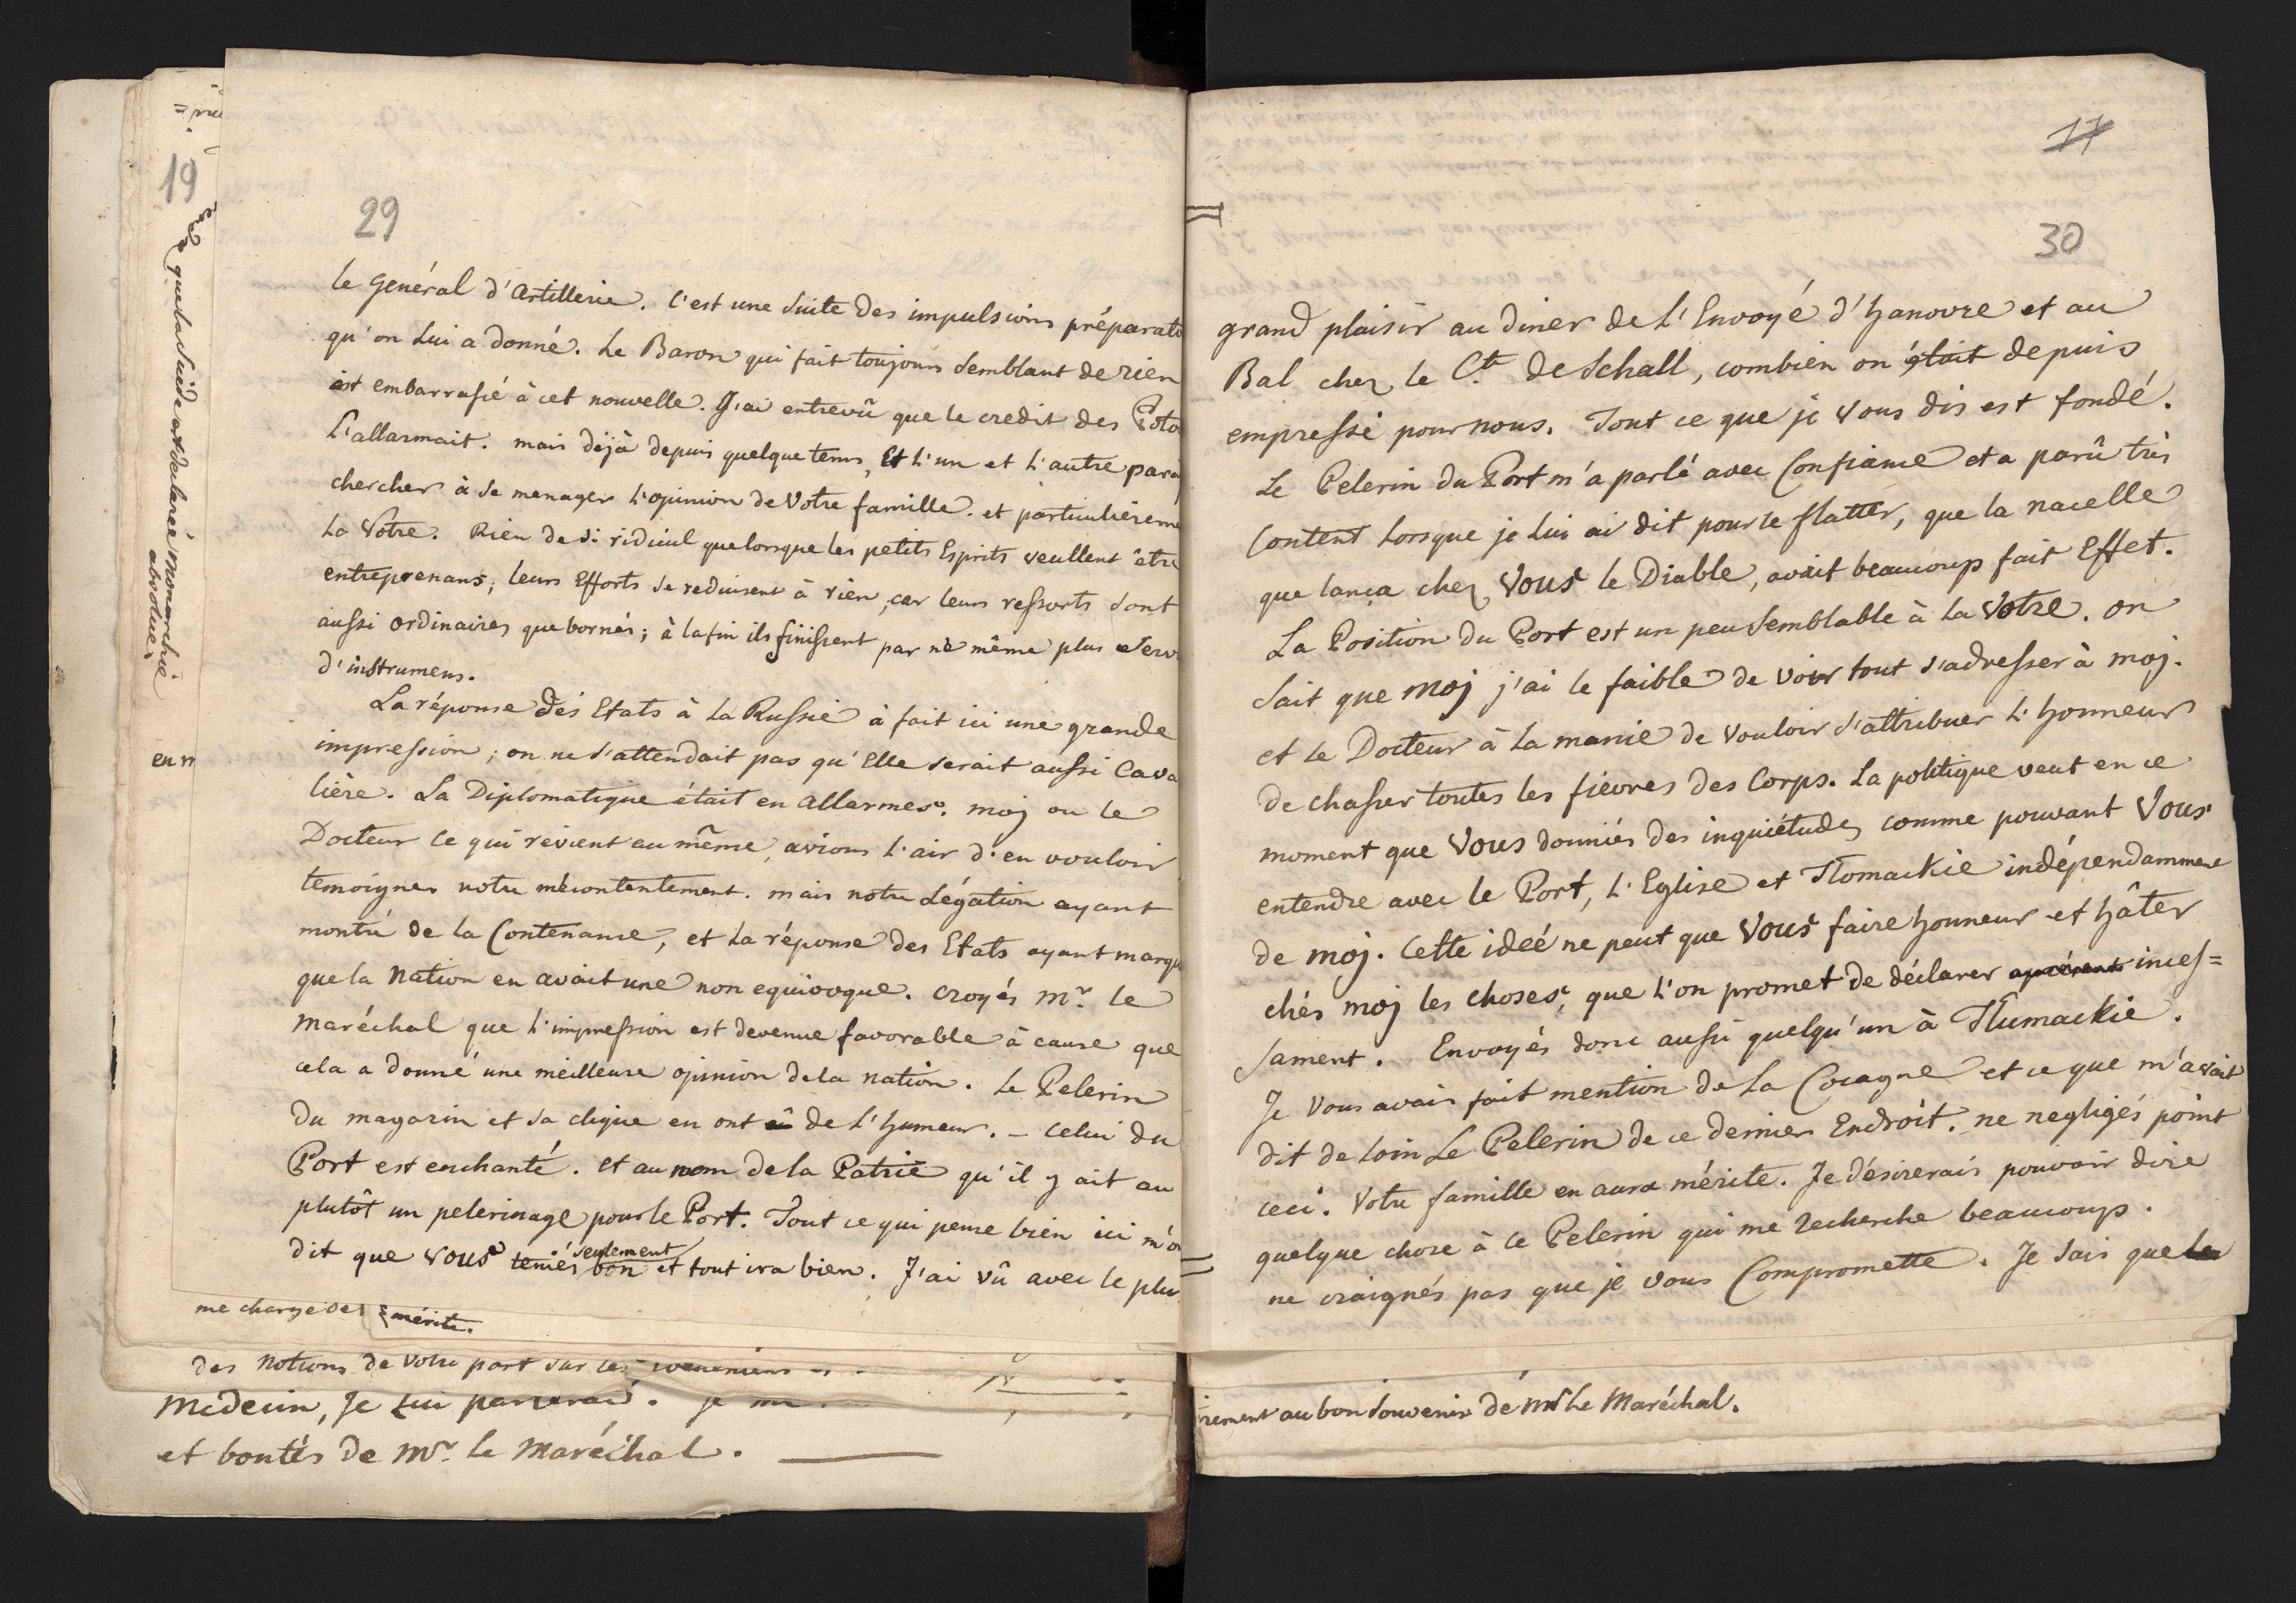 29
le Genéral d'Artillerie. C'est une suite des impulsions préparato
qu'on lui a donné. Le Baron qui fait toujours semblant de rien
est embarrassé à cet nouvelle. J'ai entrevû que le credit des Poto
L'allarmait. mais déjà depuis quelque tems, Et l'un et l'autre para
chercher à se menager l'opinion de Votre famille. et particulièreme
La Votre. Rien de si ridicul que lorsque les petits Esprits veullent être
entreprenans; leurs Efforts se reduisent à rien, car leurs ressorts sont
aussi ordinaires que bornés; à la fin ils finissent par ne même plus serv
d'instrumens.
La réponse des Etats à la Russie à fait ici une grande
impression; on ne s'attendait pas qu'Elle serait aussi Cava
lière. La Diplomatique était en allarmes. moj ou le
Docteur ce qui révient au même, avions l'air d'en vouloir
temoigner notre mécontentement. mais notre Légation ayant
montré de la Contenance, et la réponse des Etats ayant marqu
que la Nation en avait une non equivoque. croyés Mr. le
Maréchal que l'impression est devenue favorable à cause que
cela a donné une meilleure opinion de la nation. Le Pelerin
du magazin et sa clique en ont eû de l'humeur. – celui du
Port est enchanté. et au nom de la Patrie qu'il y ait au
plutôt un pelerinage pour le Port. Tout ce qui pense bien ici m'o
seulement
dit que vous teniés bon et tout ira bien. J'ai vû avec le plus
me charge de
mérite.
des Notions de Votre part sur les
Medecin, Je lui parlerai. je
et bontés de Mr. le Maréchal.
19
que la Suède est declarée Monarchie
absolue.
en n
17
30
grand plaisir au diner de l'Envoyé d'Hanovre et au
Bal chez le Cte de Schall, combien on était depuis
empressé pour nous. Tout ce que je Vous dis est fondé.
Le Pelerin du Port m'a parlé avec Confiance et a parû très
Content lorsque je lui ai dit pour le flatter, que la nacelle
que lança chez Vous le Diable, avait beaucoup fait Effet.
La Position du Port est un peu semblable à la Votre. on
sait que moj j'ai le faible de voir tout s'adresser à moj.
et le Docteur à la manie de vouloir s'attribuer l'honneur
de chasser toutes les fièvres des Corps. La politique veut en ce
moment que Vous donniés des inquiétudes comme pouvant Vous
entendre avec le Port, l'Eglise et Tlomackie indépendamment
de moj. Cette ideé ne peut que Vous faire honneur et hâter
chés moj les choses, que l'on promet de déclarer apresent inces=
sament. Envoyés donc aussi quelqu'un à Tlumackie.
Je Vous avais fait mention de la Cocagne et ce que m'avait
dit de loin Le Pelerin de ce dernier Endroit. ne negligés point
ceci. Votre famille en aura mérite. Je désirerais pouvoir dire
quelque chose à ce Pelerin qui me recherche beaucoup.
ne craignés pas que je vous Compromette. Je sais que les
rement au bon souvenir de Mr Le Maréchal.